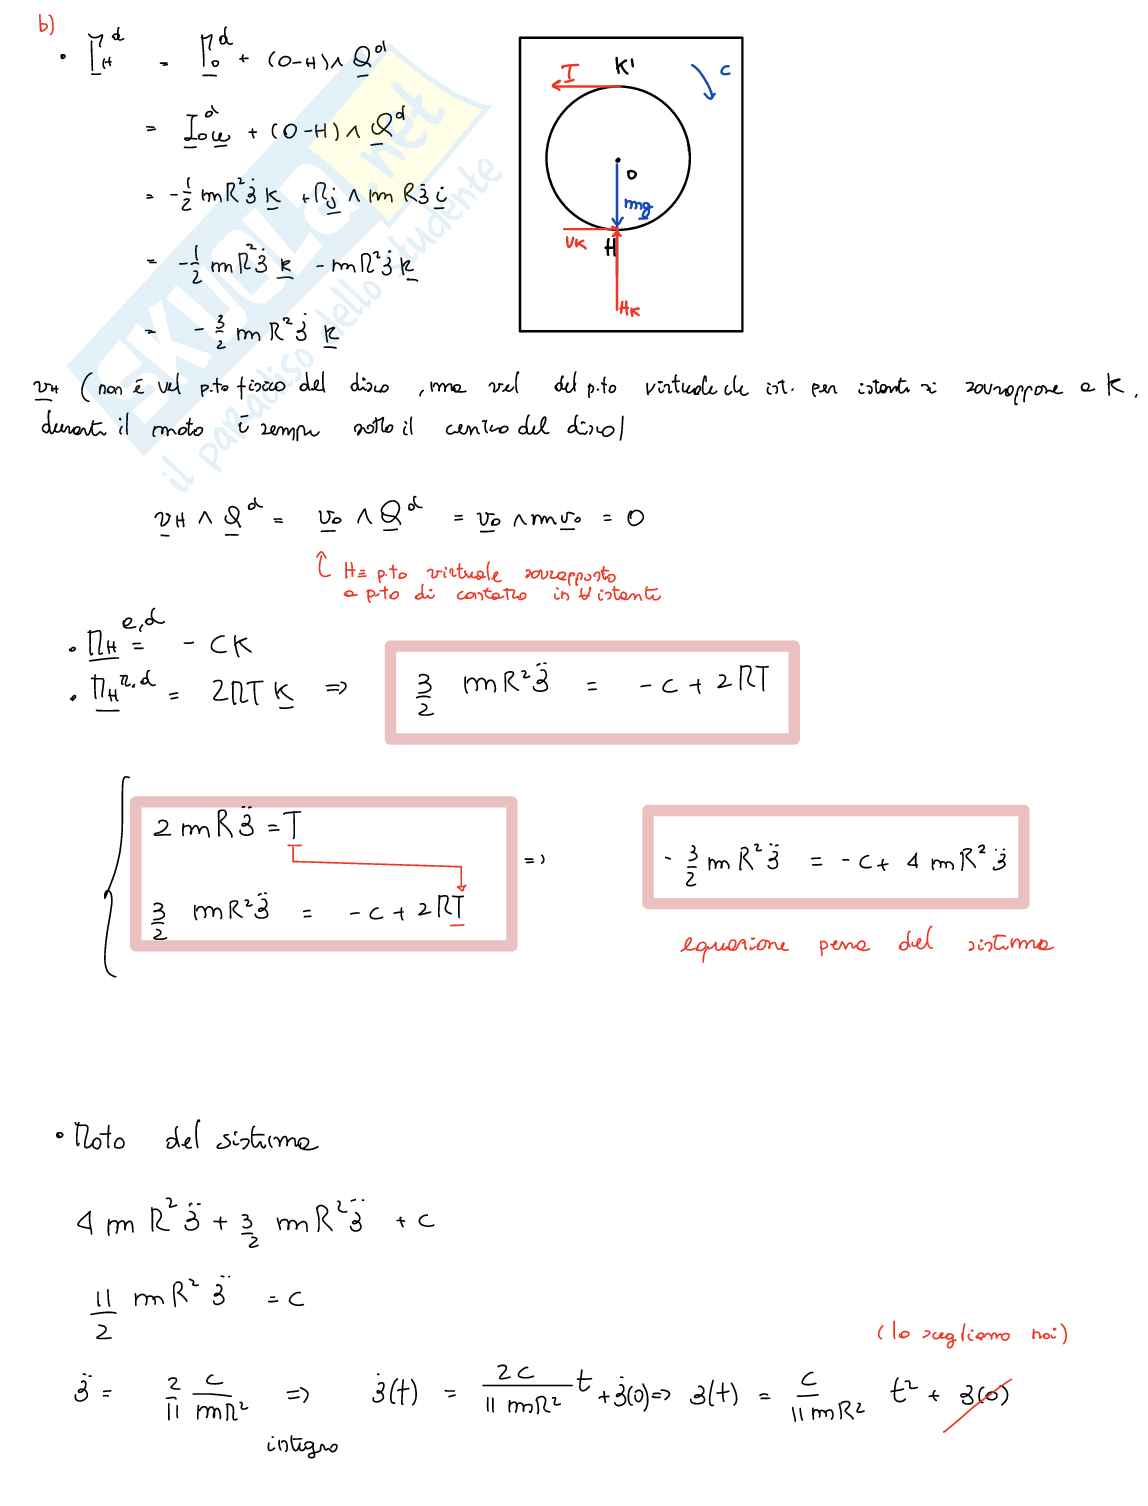 b)
• Γ_H^d = Γ_o^d + (O-H) ∧ Q^d
= I_o^d ω + (O-H) ∧ Q^d
= -1/2 mR² ż k + Rj ∧ m R ż i
= -1/2 mR² ż k - mR² ż k
= -3/2 mR² ż k
T K' C
O
mg
VK H
HK
SKUOLA.net
il paradiso dello studente
v_H (non è vel p.to fisico del disco, ma vel del p.to virtuale che ist. per istante si sovrappone a K.
durante il moto è sempre sotto il centro del disco)
v_H ∧ Q^d = v_o ∧ Q^d = v_o ∧ m v_o = 0
H ≡ p.to virtuale sovrapposto
a p.to di contatto in ∀ istante
• M_H^{e,d} = - C K
• M_H^{r,d} = 2RT k => 3/2 mR² z̈ = -C + 2RT
{ 2 m R z̈ = T
=> - 3/2 mR² z̈ = -C + 4 mR² z̈
3/2 mR² z̈ = -C + 2RT
equazione pura del sistema
• Moto del sistema
4 m R² z̈ + 3/2 mR² z̈ + C
11/2 mR² z̈ = C
(lo scegliamo noi)
z̈ = 2/11 C/mR² => ż(t) = 2C/11mR² t + ż(0) => z(t) = C/11mR² t² + z(0)
integro